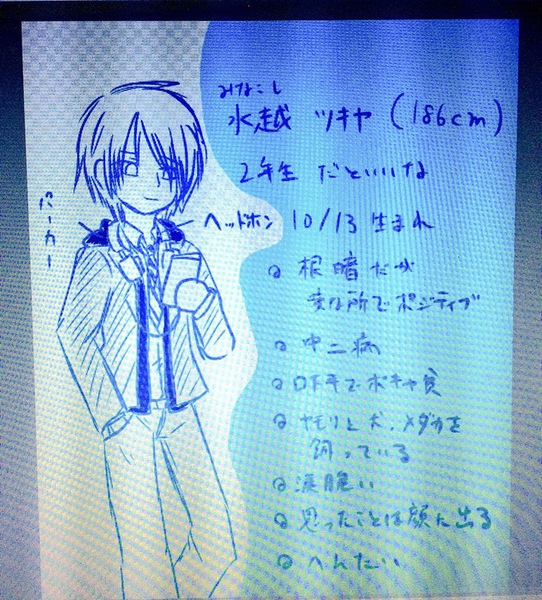 みなこし
水越 ツキヤ (186cm)
2年生 だといいな
パーカー
ヘッドホン
10/13 生まれ
根暗だが
変な所でポジティブ
中二病
口下手でボキャ貧
ヤモリと犬、メダカを
飼っている
涙脆い
思ったことは顔に出る
へんたい